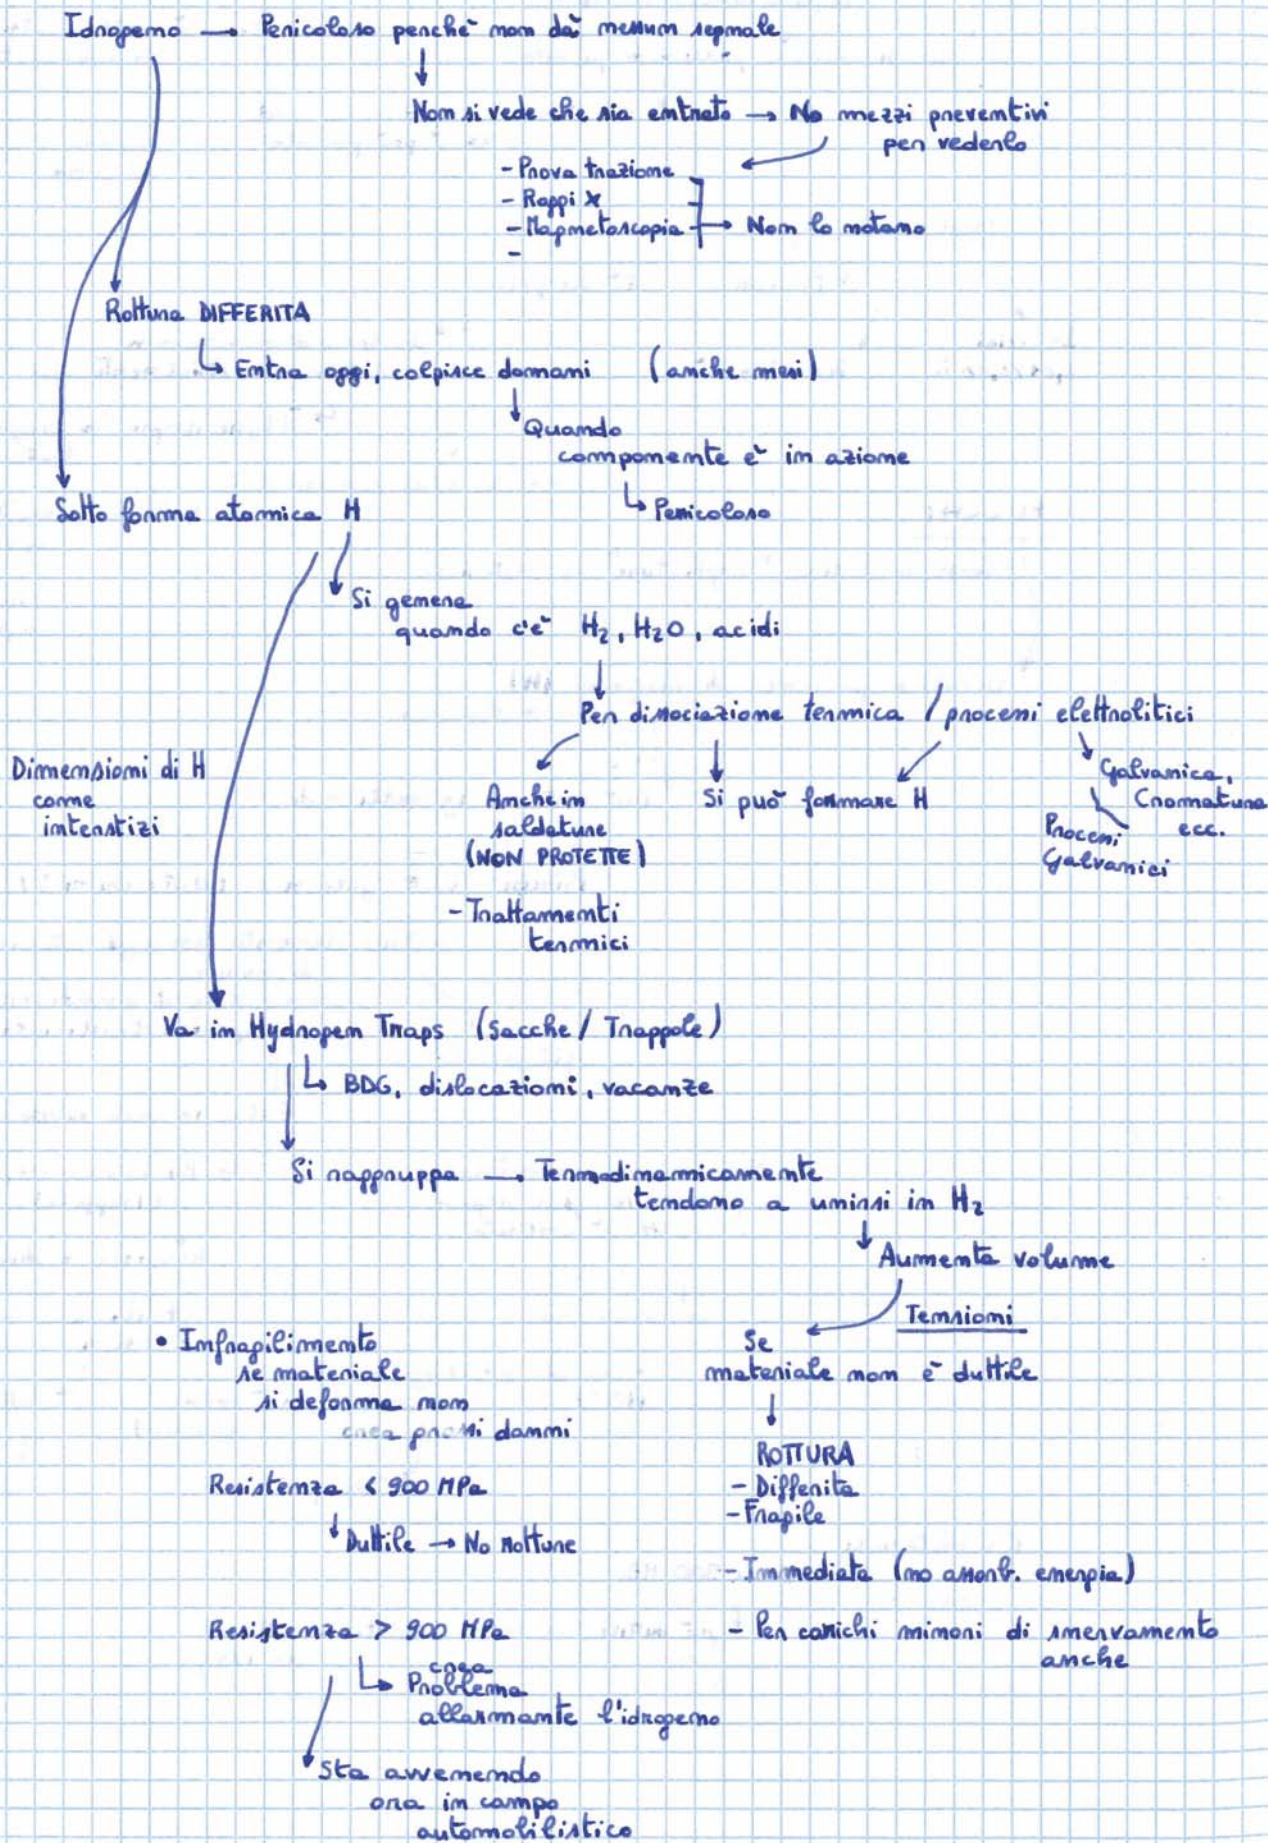 Idrogeno → Pericoloso perchè non dà nessun segnale
Non si vede che sia entrato → No mezzi preventivi
per vederlo
- Prova trazione
- Raggi X
- Magnetoscopia → Non lo notano
-
Rottura DIFFERITA
↳ Entra oggi, colpisce domani (anche mesi)
Quando
componente è in azione
↳ Pericoloso
Sotto forma atomica H
Si genera
quando c'è H₂, H₂O, acidi
Per dissociazione termica / processi elettrolitici
Dimensioni di H
come
interstizi
Anche in
saldature
(NON PROTETTE)
- Trattamenti
termici
Si può formare H
Galvanica,
Cromatura
ecc.
Processi
Galvanici
Va in Hydrogen Traps (Sacche / Trappole)
↳ BDG, dislocazioni, vacanze
Si raggruppa → Termodinamicamente
tendono a unirsi in H₂
Aumenta volume
Tensioni
Se
materiale non è duttile
ROTTURA
- Differita
- Fragile
- Immediata (no assorb. energia)
- Per carichi minori di snervamento
anche
• Infragilimento
se materiale
si deforma non
crea grossi danni
Resistenza < 900 MPa
Duttile → No rotture
Resistenza > 900 MPa
crea
↳ Problema
allarmante l'idrogeno
Sta avvenendo
ora in campo
automobilistico